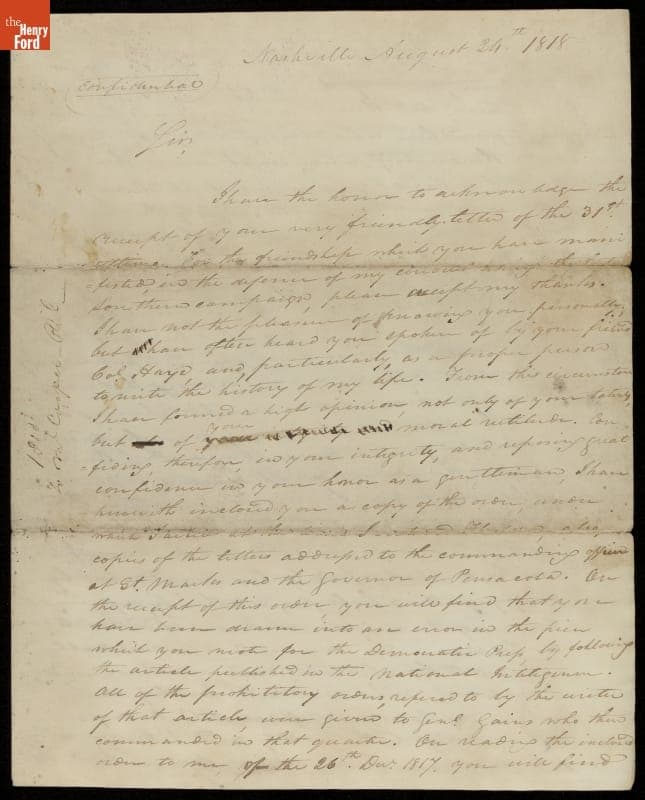 the
Henry
Ford
Nashville August 24th 1818
Confidential
Sir,
I have the honor to acknowledge the
receipt of your very friendly letter of the 31st.
ultimo. For the friendship which you have mani
=fested, in the defence of my conduct during the late
Southern campaign, please accept my thanks.
I have not the pleasure of knowing you personally,
but have often heard you spoken of by your friend
Col. Hayne, and particularly, as a proper person
to write the history of my life. From this circumstance
I have formed a high opinion, not only of your talents,
but of your moral rectitude. Con
=fiding, therefore, in your integrity, and reposing great
confidence in your honor as a gentleman, I have
herewith inclosed you a copy of the order, under
which I acted at the time I entered Florida, also
copies of the letters addressed to the commanding officer
at St. Marks and the Governor of Pensacola. On
the receipt of this order you will find that you
have been drawn into an error in the piece
which you wrote for the Democratic Press by following
the article published in the National Intelligencer.
All of the prohibitory orders, refered to by the writer
of that article, were given to Genl Gains who then
commanded in that quarter. On reading the inclosed
order to me of the 26th Decr. 1817. you will find
1818